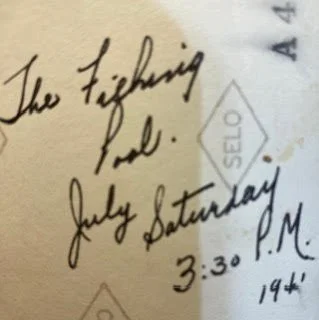 The Fishing
Pool.
July Saturday
3:30 P.M.
SELO
A 4